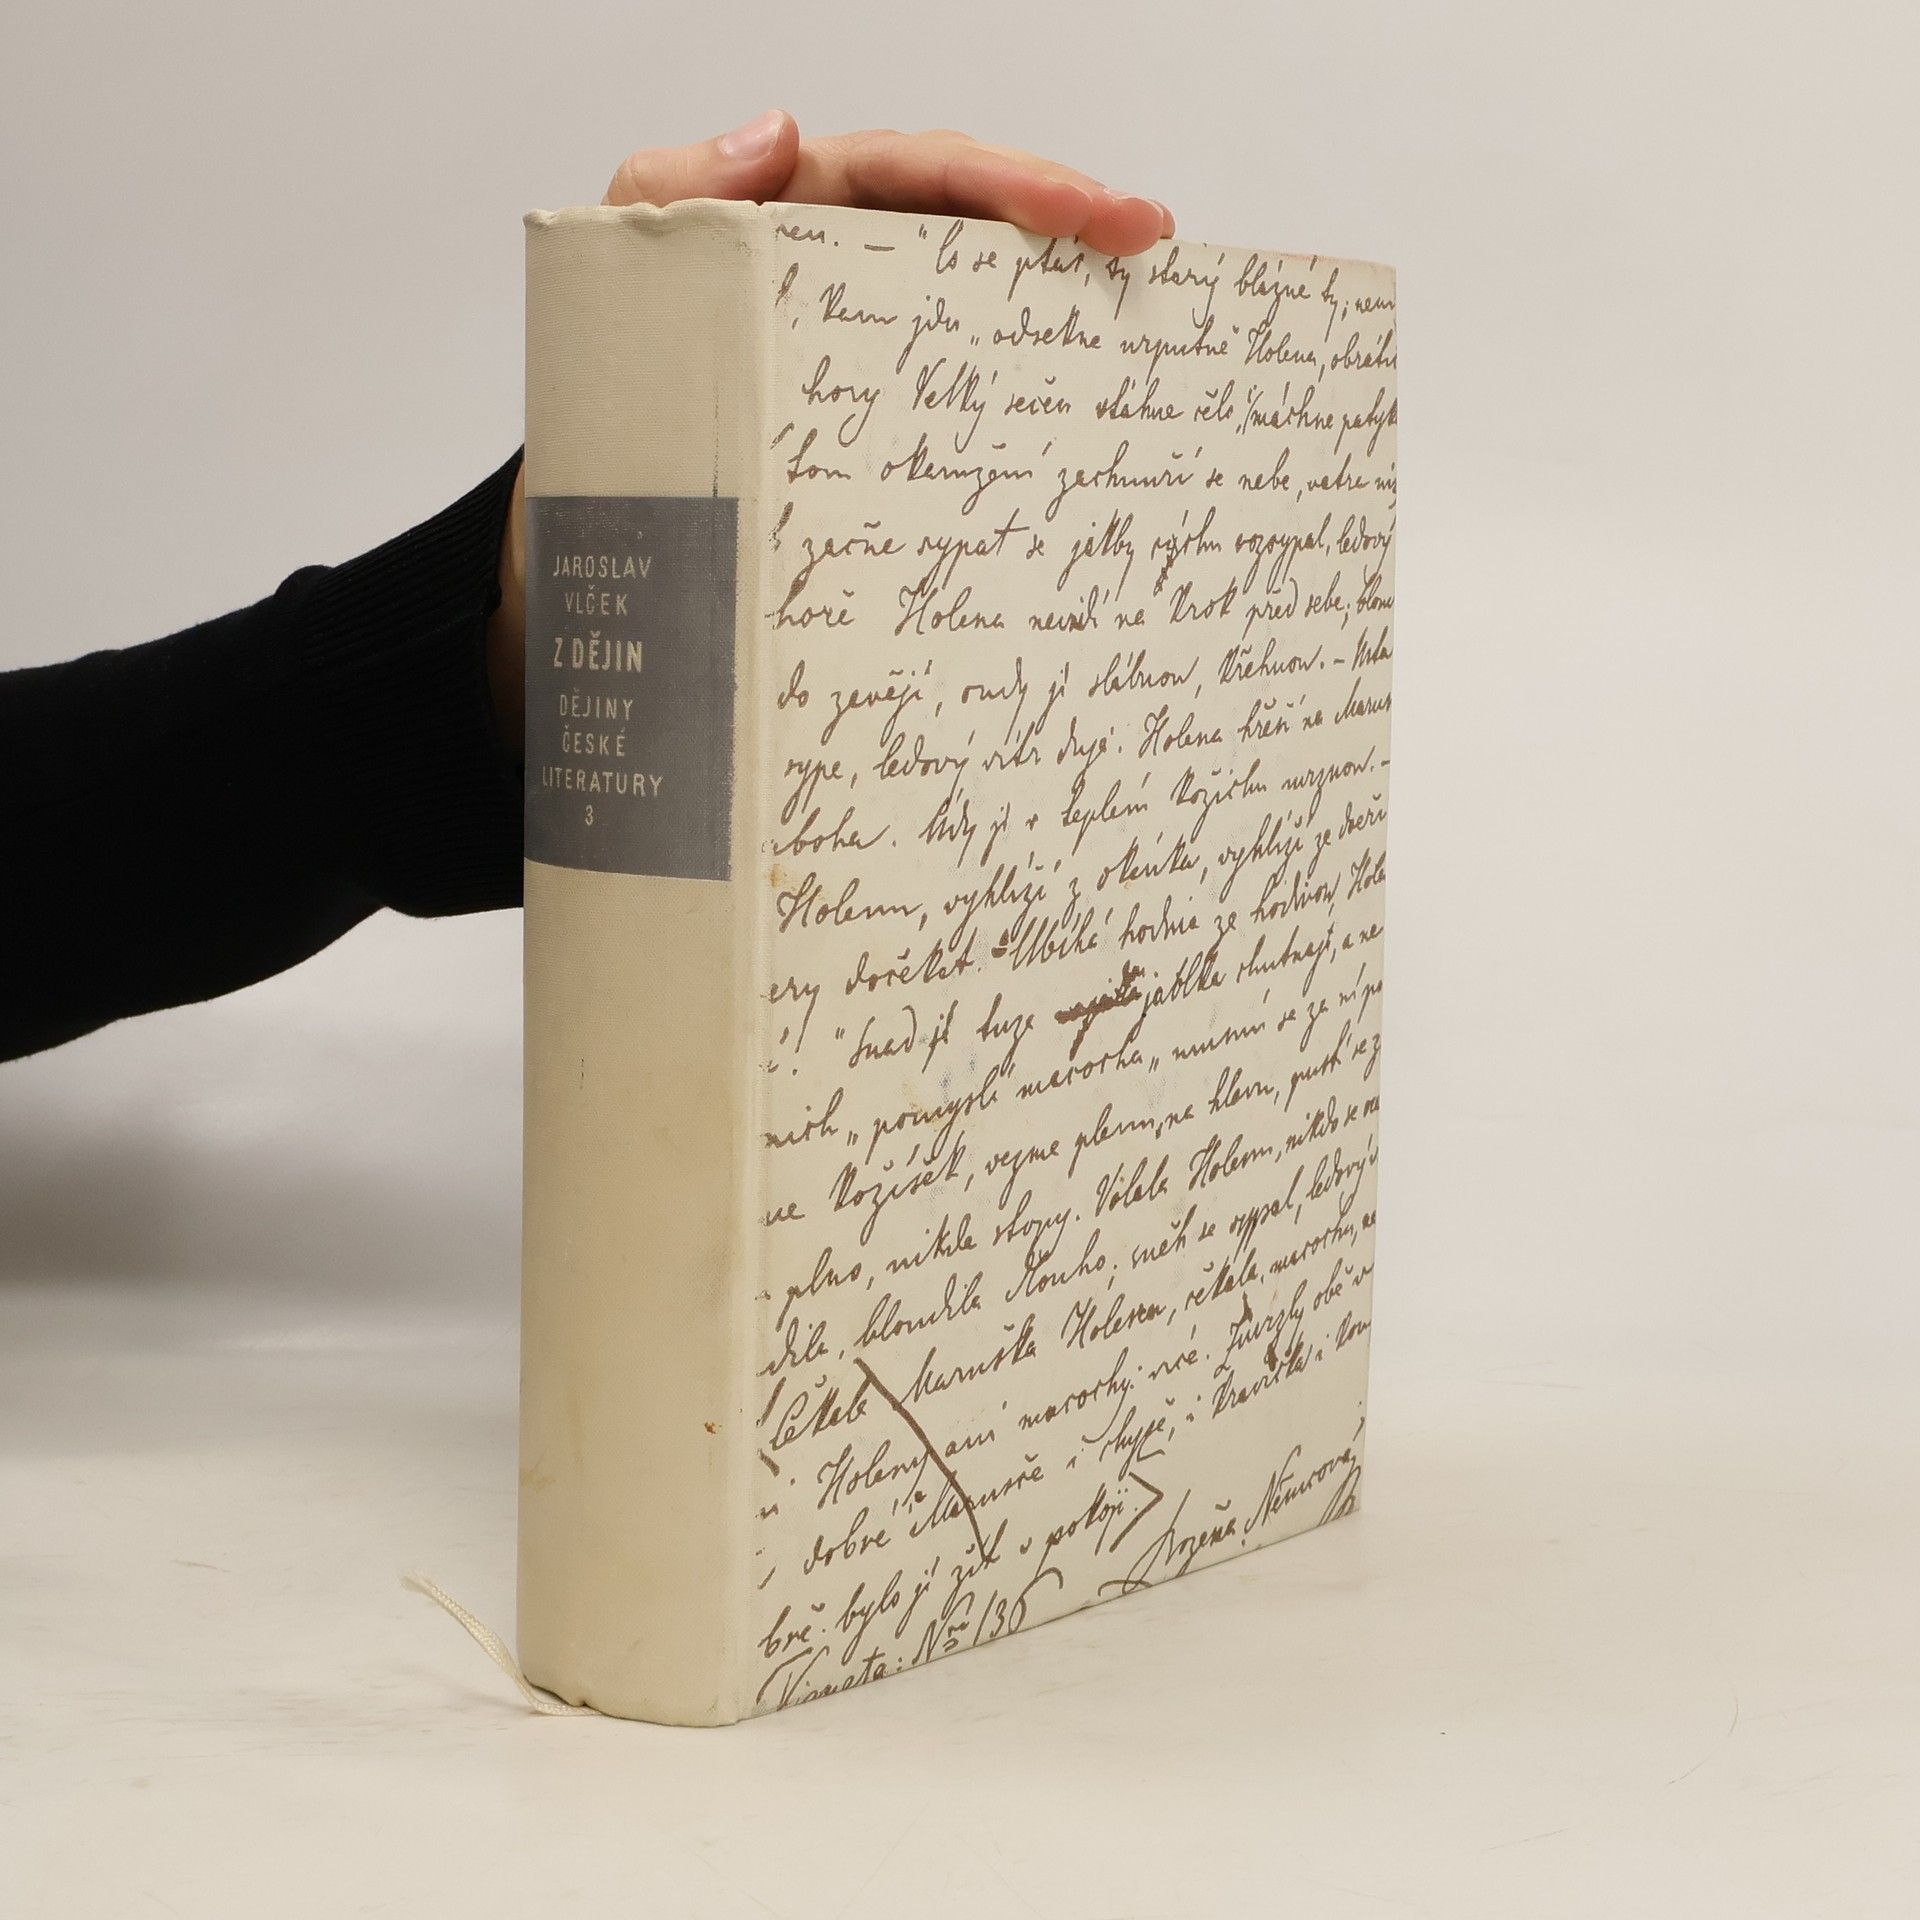 JAROSLAV
VLČEK
Z DĚJIN
DĚJINY
ČESKÉ
LITERATURY
3
— "Co se ptáš, ty starý blázne ty;
Kam jdu „odsekne urputně Holena,
hory Velký sečen stáhne čelo, máchne
tom okamžení zachmuří se nebe, vatra
začne sypat se jakby rozsypal, ledový
hoře Holena nevidí na krok před sebe;
do zavějí, oudy jí slábnou, křehnou. –
sype, ledový vítr duje. Holena hřeší na
boha. Údy jí v teplém kožichu mrznou. –
Holenu, vyhlíží z okénka, vyhlíží ze dveří
dočekat. Ubíhá hodina ze hodinou,
"Snad jí tuze jablka chutnají, a ne
nich „pomyslí macocha„ musím se za ní
kožíšek, vezme plenu na hlavu, pustí se z
plno, nikde stopy. Volala Holenu, nikdo se
dila, bloudila dlouho; sněh se sypal, ledový
Čekala Maruška Holenu, čekala macochu,
Holeny ani macochy více. Zmrzly obě v
dobré Marušce i chyže, i kravička i
bylo jí žít v pokoji.
Božena Němcová
Vigneta: Nro 136